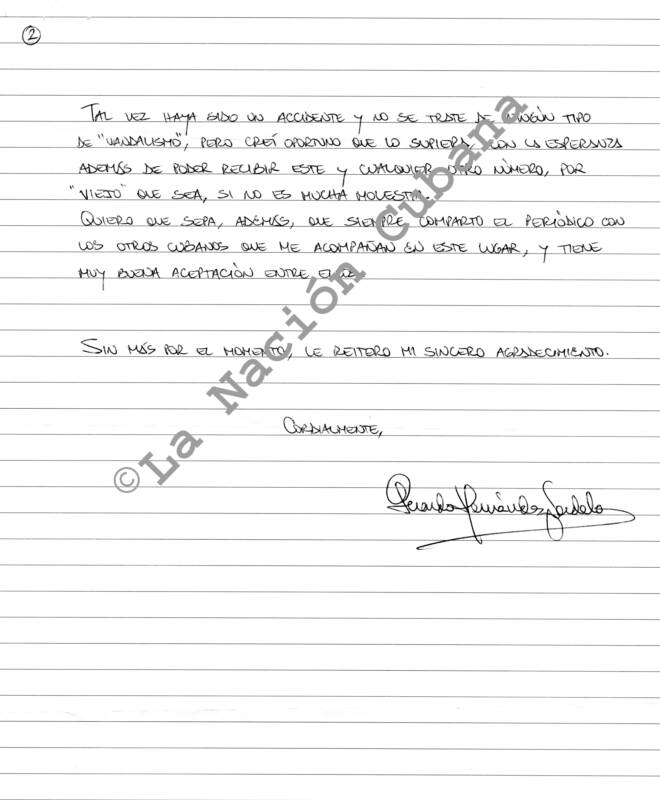 2
TAL VEZ HAYA SIDO UN ACCIDENTE Y NO SE TRATE DE NINGÚN TIPO
DE "VANDALISMO", PERO CREÍ OPORTUNO QUE LO SUPIERA, CON LA ESPERANZA
ADEMÁS DE PODER RECIBIR ESTE Y CUALQUIER OTRO NÚMERO, POR
"VIEJO" QUE SEA, SI NO ES MUCHA MOLESTIA.
QUIERO QUE SEPA, ADEMÁS, QUE SIEMPRE COMPARTO EL PERIÓDICO CON
LOS OTROS CUBANOS QUE ME ACOMPAÑAN EN ESTE LUGAR, Y TIENE
MUY BUENA ACEPTACIÓN ENTRE
SIN MÁS POR EL MOMENTO, LE REITERO MI SINCERO AGRADECIMIENTO.
CORDIALMENTE,
Gerardo Hernández Nordelo
© La Nación Cubana